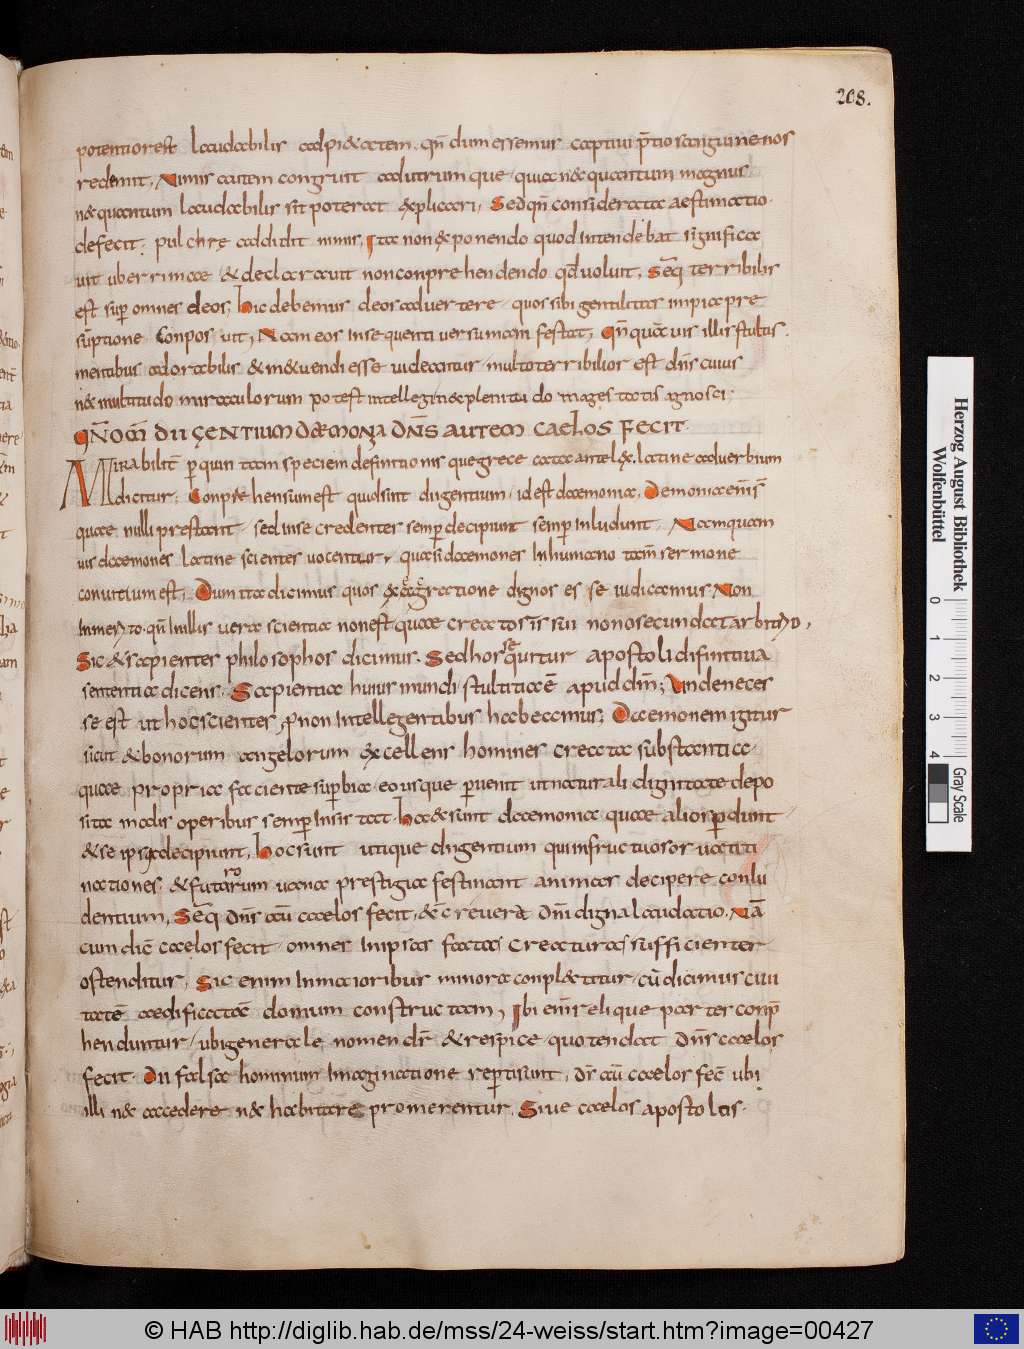 208.
potentior est laudabilis ad pi&atem. qn̄ dum essemus captiui p̄tio sanguine nos
redemit, Nimis autem congruit ad utrum que quia n& quantum magnus
n& quantum laudabilis sit poterat explicari, Sed qn̄ considerata aestimatio
defecit. pulchre addidit nimis, Ita non exponendo quod intendebat significa
uit uberrimae & declarauit non conprehendendo qđ uoluit, Seq̄ terribilis
est sup omnes deos, hic debemus deos aduertere quos sibi gentilitas impia pre
sūptione conposuit, Nam eos insequenti uersu manifestat, Qn̄ quāuis illis stultis
mentibus adorabilis & m&uendi esse uideantur multo terribilior est dn̄s cuius
n& multitudo miraculorum potest intellegi n& plenitudo magestatis agnosci;
QN̄ OM̄ DII GENTIUM DAEMONIA DN̄S AUTEM CAELOS FECIT.
Mirabilit̄ p quintam speciem definitionis que grece cata antilex. latine aduerbium
dicitur; Conprehensum est quid sint dii gentium, id est daemonia, Demonia eni̅ s̄
quae nulli prestant, sed in se credentes semp decipiunt semp inludunt, Nam quam
uis daemones latine scientes uocentur, quasi daemones In humano tam̄ sermone
conuitium est, Dum ita dicimus quos exaggratione dignos esse iudicamus Non
Inmerito. qn̄ In illis uera scientia non est quae creatoris sui non osecundat arbitrio,
Sic & sapientes philosophos dicimus. Sed hos sequitur apostoli difinitiua
sententia dicens, Sapientia huius mundi stultitia ē apud dm̄; Unde neces
se est ut hoc scientes, p non Intellegentibus habeamus; Daemonem igitur
sicut & bonorum angelorum excellens homines creata substantia
quae propria faciente supbia eo usque puenit ut naturali dignitate depo
sita malis operibus semp Insistat. haec sunt daemonia quae alios pdunt
& se ipsa decipiunt, hoc sunt utique dii gentium qui infructuosor uatiti
nationes & futurorum uana prestigia festinant animas decipere conlu
dentium, Seq̄ dn̄s aū caelos fecit, & c̄ reuera dn̄i digna laudatio, Nā
cum dic̄ caelos fecit omnes Impsas factas creaturas sufficienter
ostenditur, Sic enim In maioribus minora conpl&itur, cū dicimus ciui
tatē aedificatā domum constructam, Ibi eni̅ relique partes conp̄
henduntur, ubi generale nomen dr̄ & respice quo tendat dn̄s caelos
fecit. Dii falsa hominum Imaginatione repti sunt, dr̄ aū caelos fec̄ ubi
illi n& accedere n& habitare promerentur, Siue caelos apostolos.
Herzog August Bibliothek
Wolfenbüttel
0 1 2 3 4
Gray Scale
© HAB http://diglib.hab.de/mss/24-weiss/start.htm?image=00427